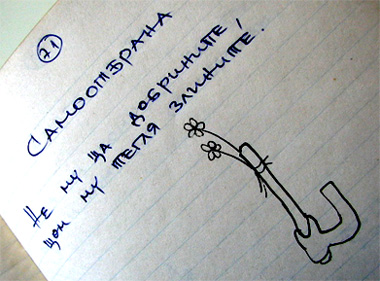 71
САМООТБРАНА
НЕ МУ ЩА ДОБРИНИТЕ,
ЩОМ МУ ТЕГЛЯ ЗЛИНИТЕ!